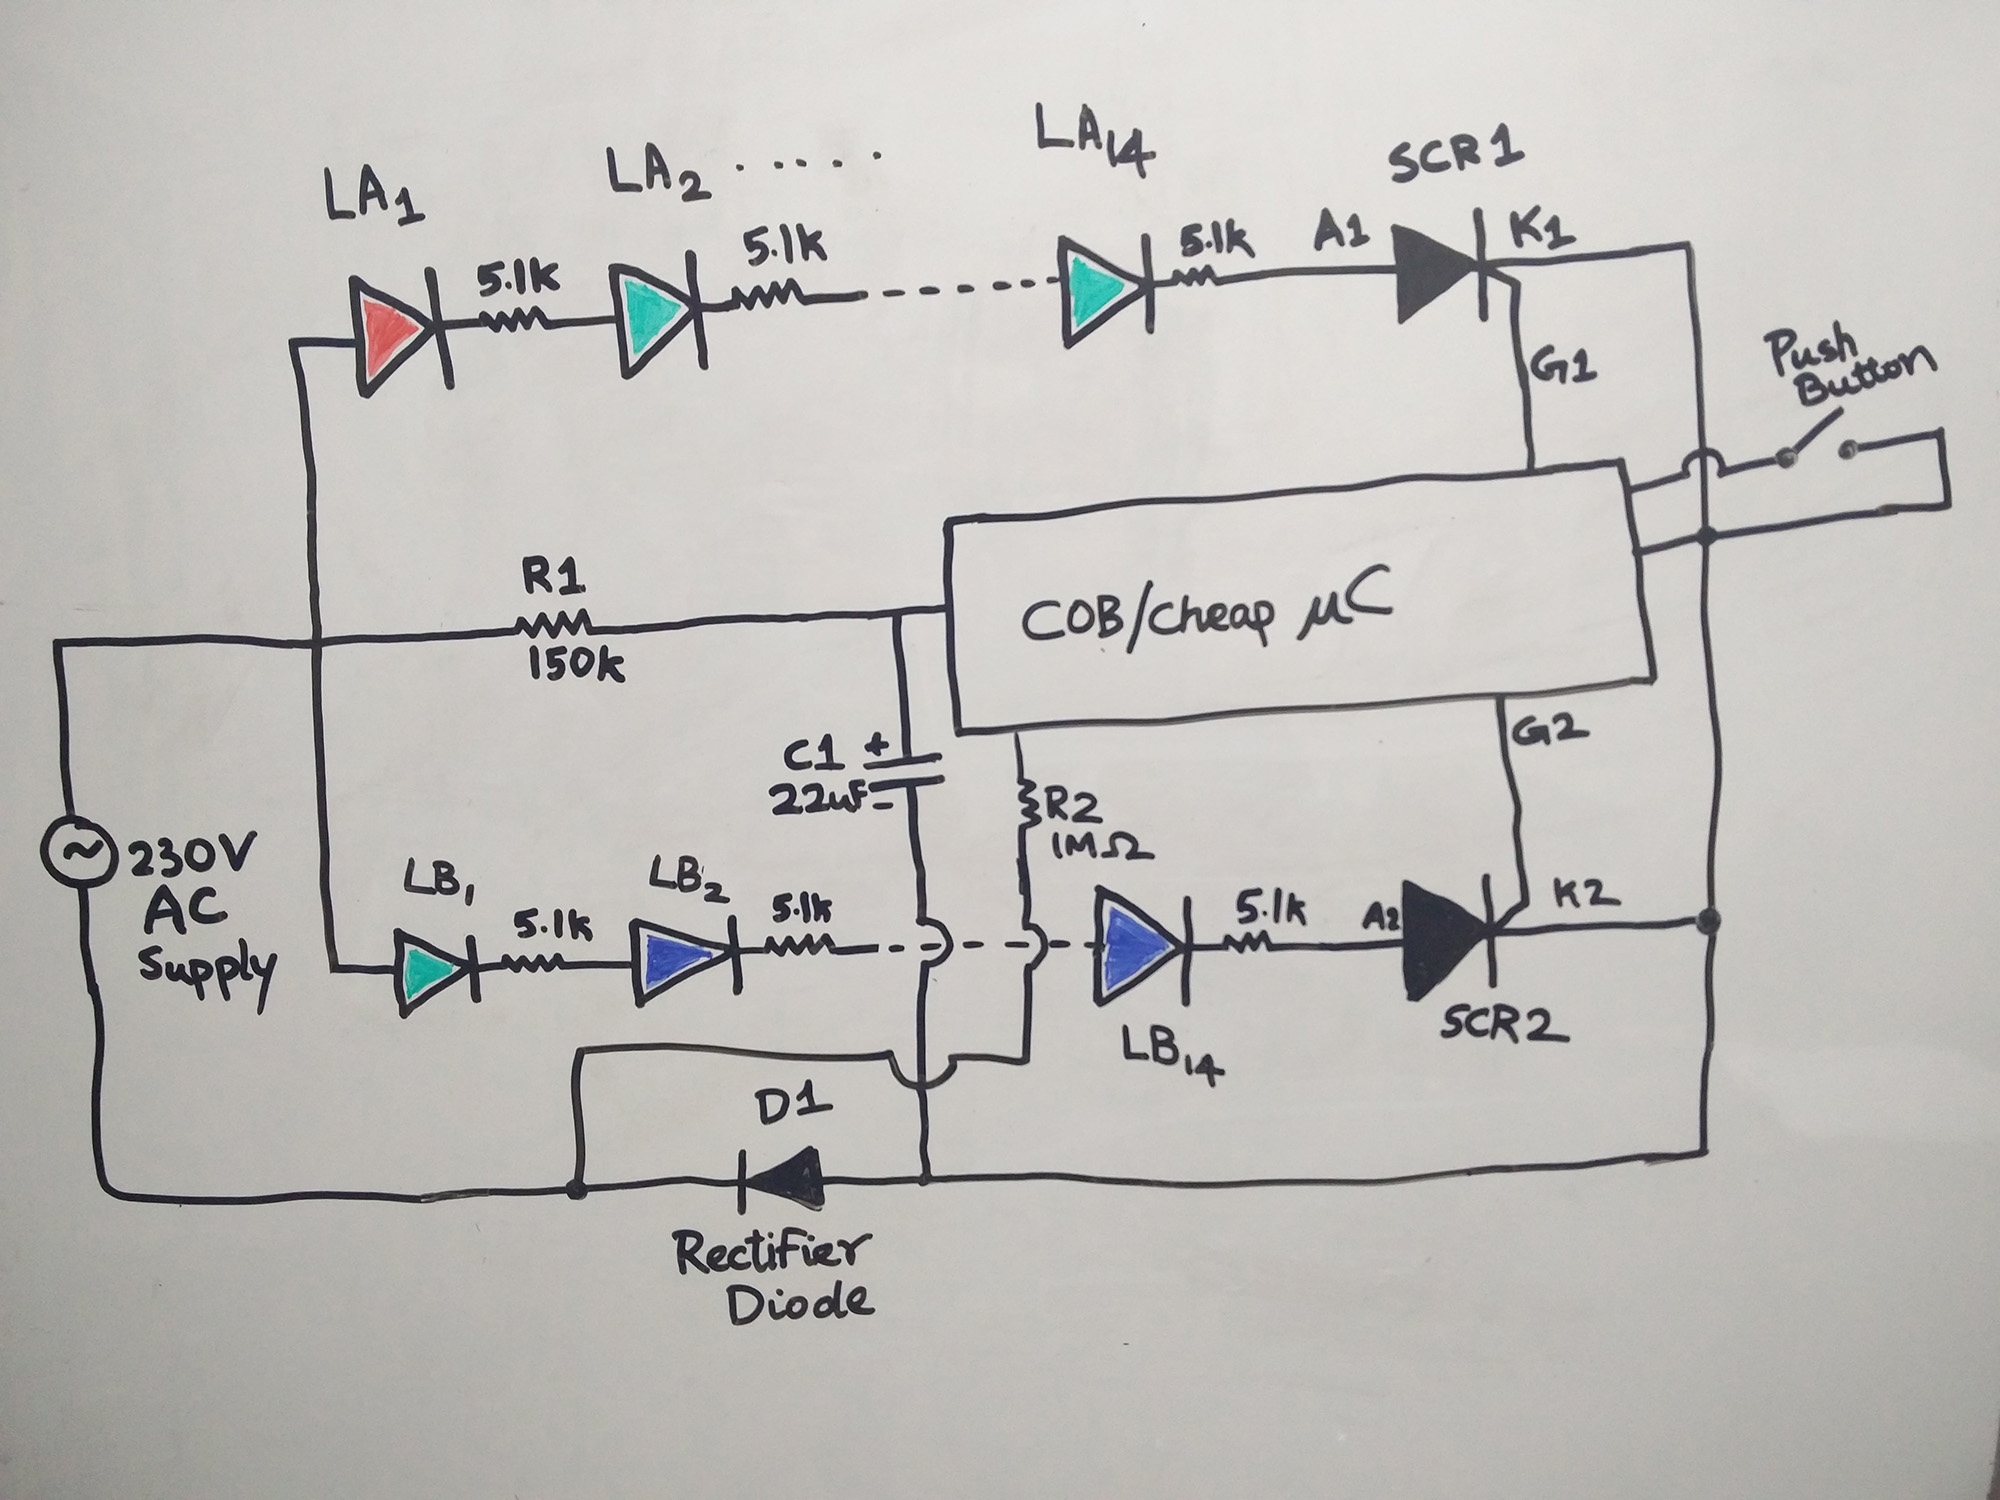 LA1
LA2 .....
LA14
SCR1
5.1k
5.1k
5.1k
A1
K1
G1
Push
Button
R1
150k
COB/Cheap μC
C1 +
22uF -
R2
1MΩ
G2
~
230V
AC
Supply
LB1
LB2
5.1k
5.1k
5.1k
A2
K2
LB14
SCR2
D1
Rectifier
Diode